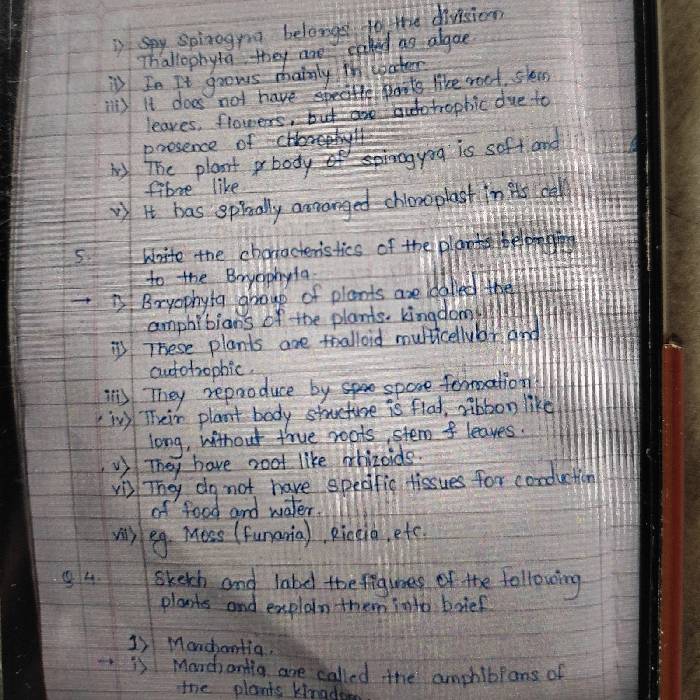 i) Spy Spirogyra belongs to the division
Thallophyta they are called as algae
ii) In It grows mainly in water
iii) It does not have specific parts like root, stem
leaves, flowers, but are autotrophic due to
presence of chlorophyll
iv) The plant body of spirogyra is soft and
fibre like
v) It has spirally arranged chloroplast in its cell
5. Write the characteristics of the plants belonging
to the Bryophyta.
→ i) Bryophyta group of plants are called the
amphibians of the plants. kingdom.
ii) These plants are thalloid multicellular and
autotrophic.
iii) They reproduce by spore formation.
iv) Their plant body structure is flat, ribbon like
long, without true roots, stem & leaves.
v) They have root like rhizoids.
vi) They do not have specific tissues for conduction
of food and water.
vii) eg. Moss (funaria), Riccia, etc.
Q 4. Sketch and label the figures of the following
plants and explain them into brief
1) Marchantia.
→ i) Marchantia are called the amphibians of
the plants kingdom